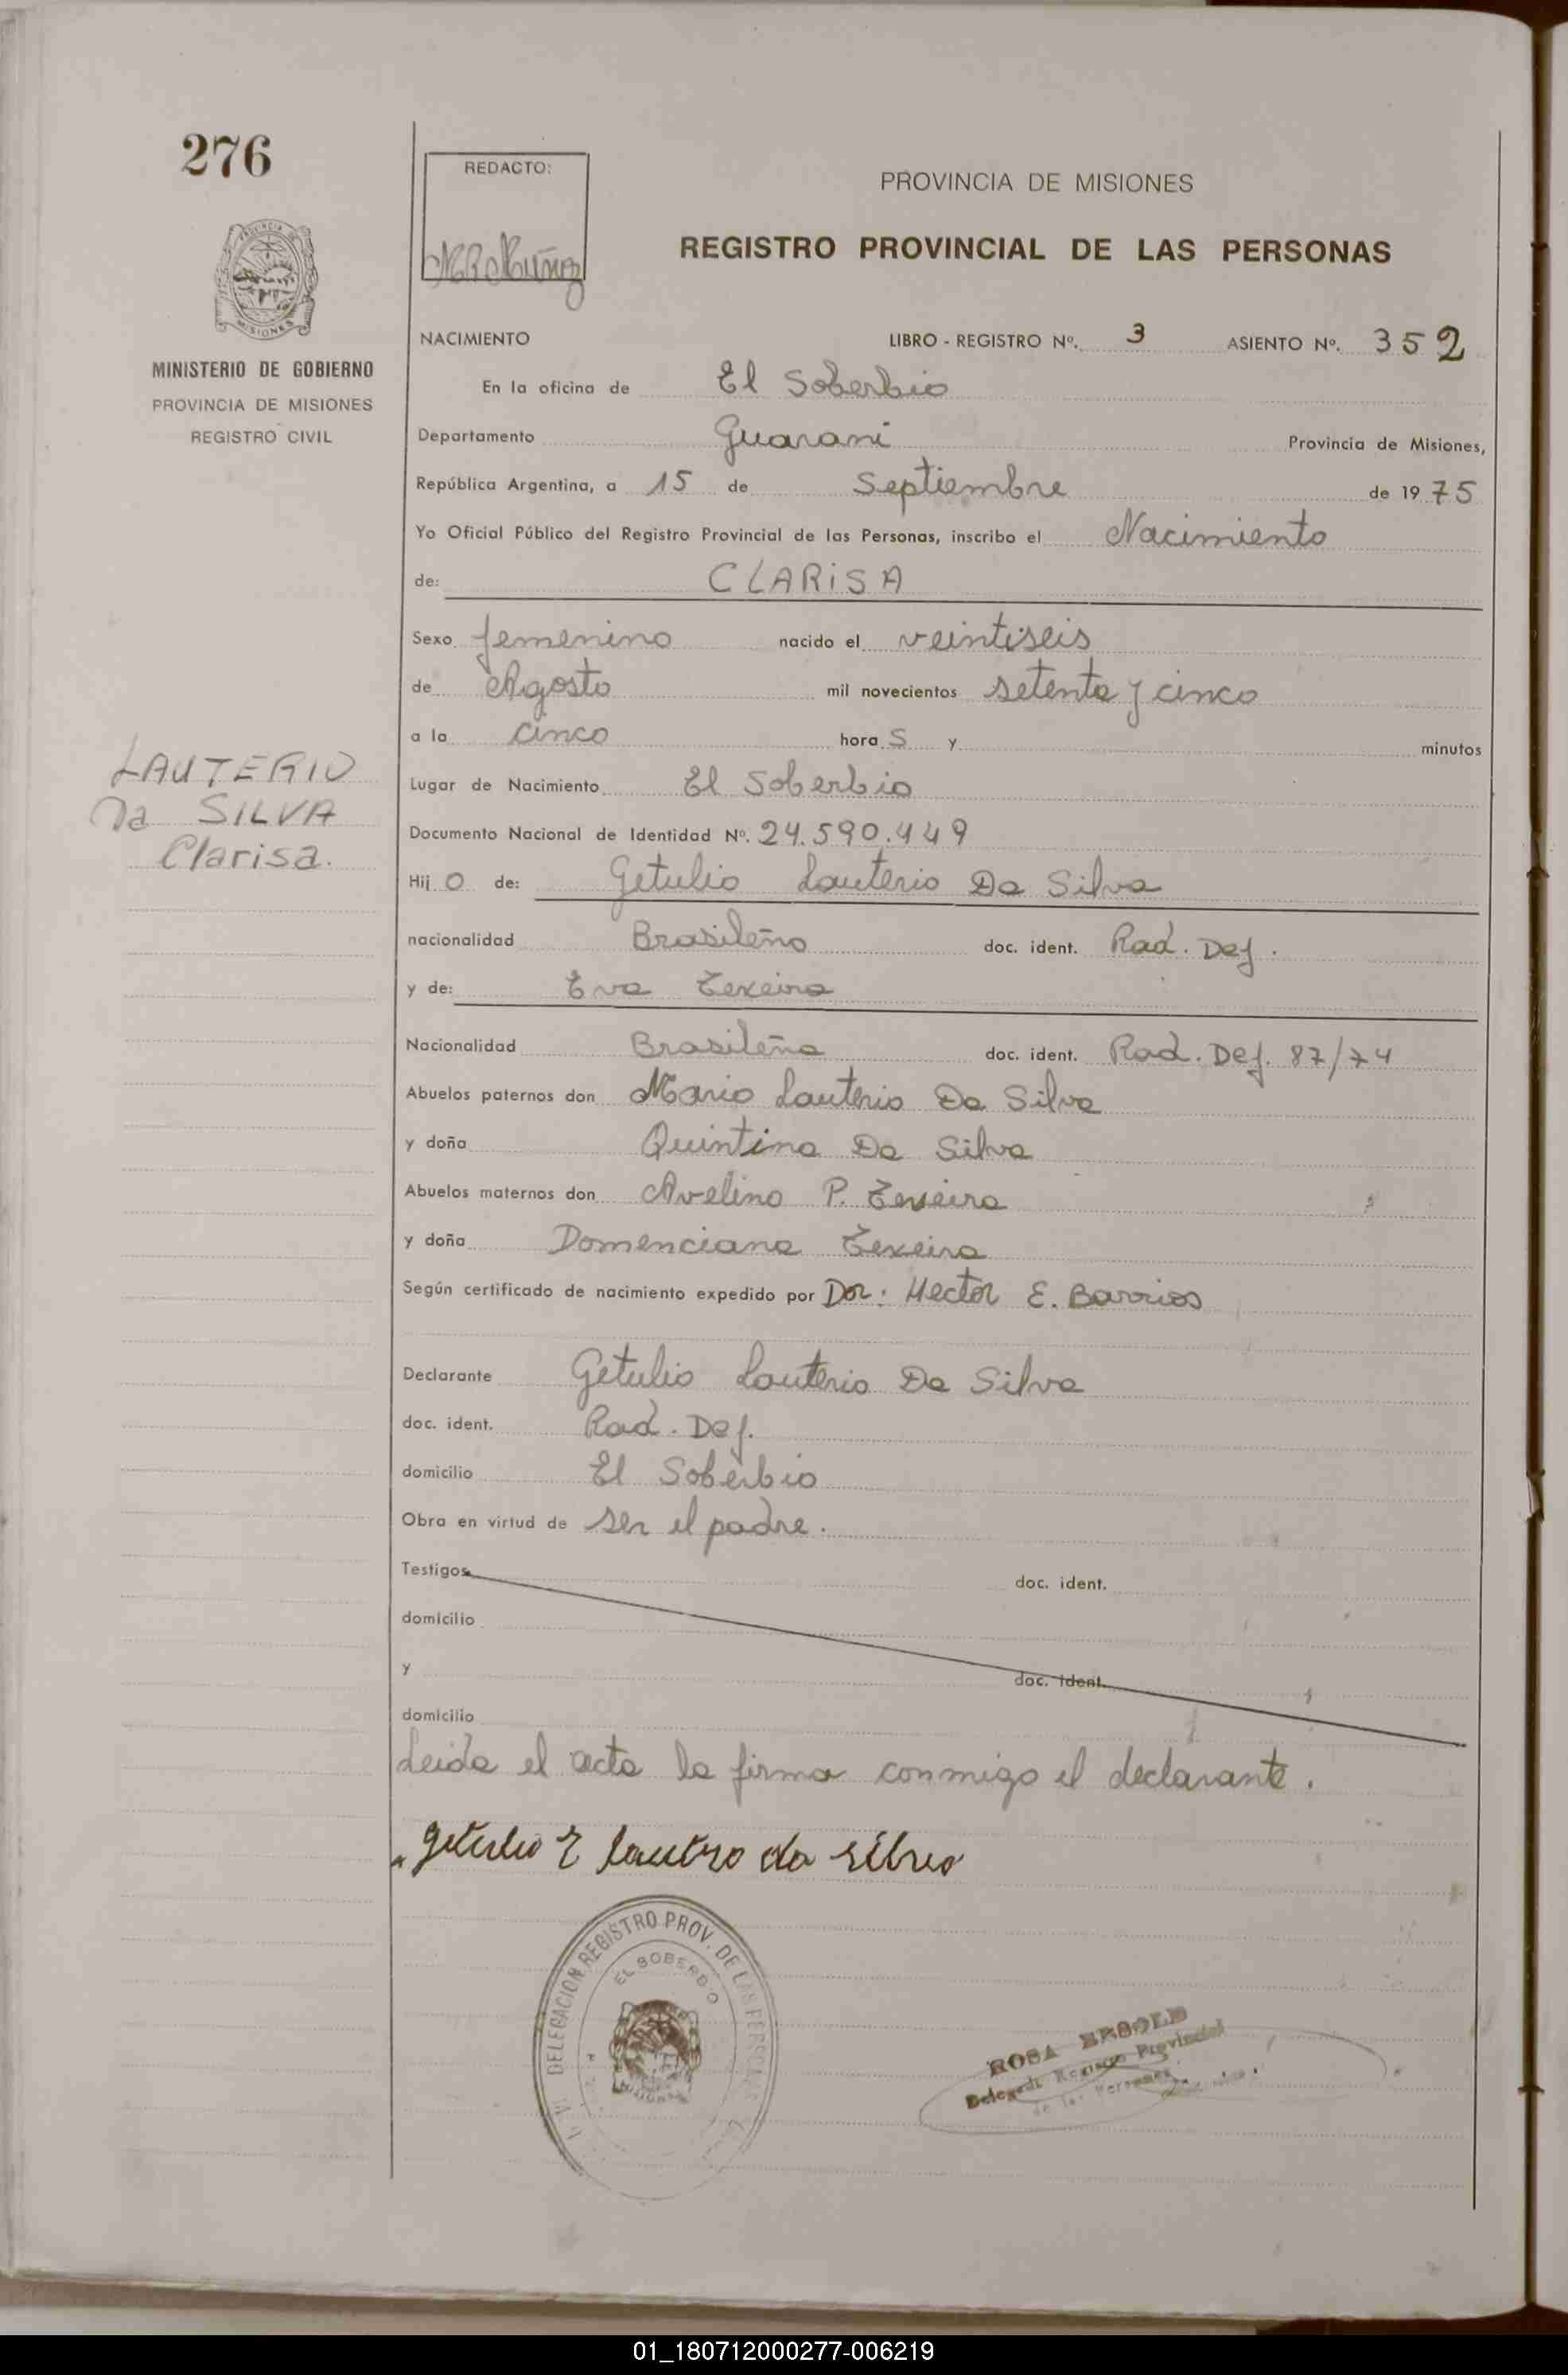 276
REDACTO:
PROVINCIA DE MISIONES
REGISTRO PROVINCIAL DE LAS PERSONAS
MINISTERIO DE GOBIERNO
PROVINCIA DE MISIONES
REGISTRO CIVIL
NACIMIENTO LIBRO - REGISTRO Nº. 3 ASIENTO Nº. 352
En la oficina de El Soberbio
Departamento Guarani Provincia de Misiones,
República Argentina, a 15 de Septiembre de 1975
Yo Oficial Público del Registro Provincial de las Personas, inscribo el Nacimiento
de: CLARiSA
Sexo femenino nacido el veintiseis
de Agosto mil novecientos setenta y cinco
a la cinco hora S y minutos
LAUTERIO
Da SILVA
Clarisa.
Lugar de Nacimiento El Soberbio
Documento Nacional de Identidad Nº. 24.590.449
Hij o de: Getulio Lauterio Da Silva
nacionalidad Brasileño doc. ident. Rad. Def.
y de: Eva Texeira
Nacionalidad Brasileña doc. ident. Rad. Def. 87/74
Abuelos paternos don Mario Lauterio Da Silva
y doña Quintina Da Silva
Abuelos maternos don Avelino P. Texeira
y doña Domenciana Texeira
Según certificado de nacimiento expedido por Dor: Hector E. Barrios
Declarante Getulio Lauterio Da Silva
doc. ident. Rad. Def.
domicilio El Soberbio
Obra en virtud de ser el padre.
Testigos doc. ident.
domicilio
y doc. ident.
domicilio
Leida el acta la firma conmigo el declarante.
getulio lautro da silva
DELEGACION REGISTRO PROV. DE LAS PERSONAS
EL SOBERBIO
ROSA
Registro Provincial
de las Personas
01_180712000277-006219